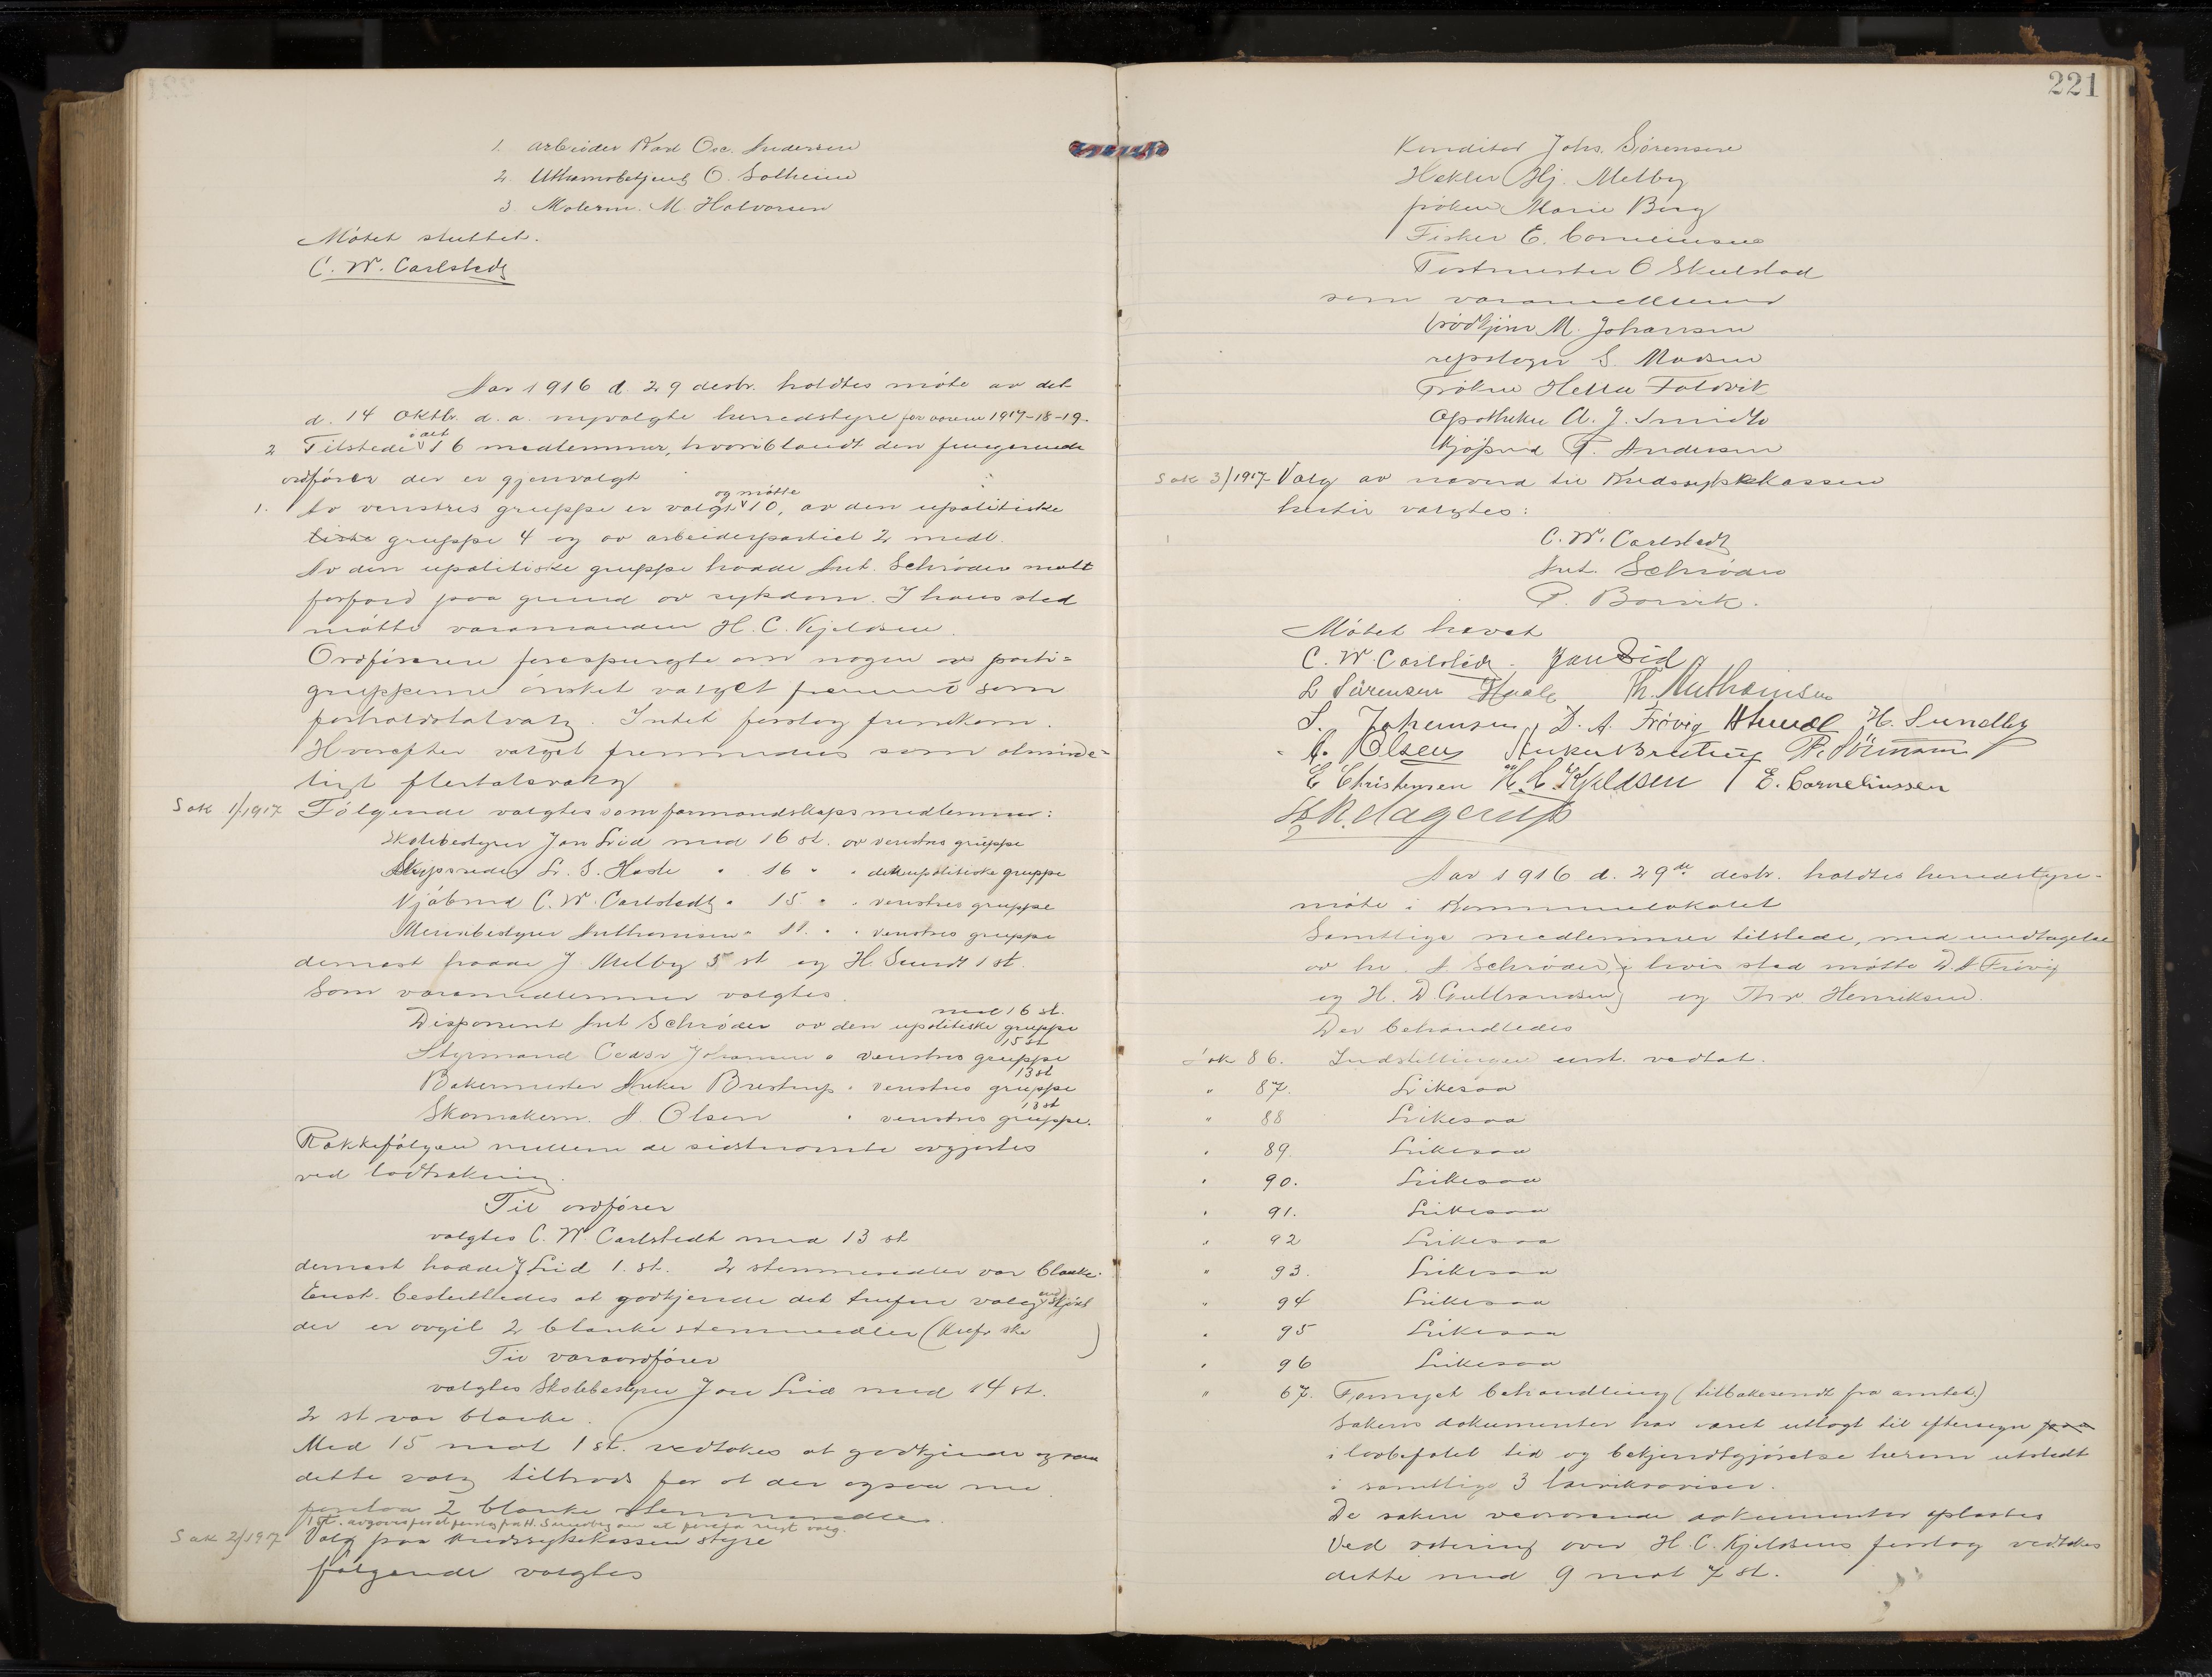 1. arbeider Karl Osc. Andersen
2. O. Solheim
3 Malerm. M. Halvorsen
Møtet sluttet.
C. W. Carlstedt
Aar 1916 d. 29 desbr. holdtes møte av det
d. 14 oktbr. d. a. nyvalgte herredstyre for aarene 1917-18-19.
2 Tilstede i alt 16 medlemmer, hvoriblandt den fungerende
ordfører der er gjenvalgt
1. Av venstres gruppe er valgt og møtte 10, av den upolitiske
tiske gruppe 4 og av arbeiderpartiet 2 medl.
Av den upolitiske gruppe hadde Ant. Schrøder meldt
forfald paa grund av sykdom. I hans sted
møtte varamanden H. C. Kjeldsen.
Ordføreren forespurgte om nogen av parti=
grupperne ønsket valget fremmet som
forholdstalvalg. Intet forslag fremkom.
Hvorefter valget fremmedes som alminde=
ligt flertalsvalg
Sak 1/1917 Følgende valgtes som formandskapsmedlemmer:
Skolebestyrer Jon Lid med 16 st. av venstres gruppe
Skipsreder L. S. Hasle " 16 " " den upolitiske gruppe
Kjøbmd C. W. Carlstedt " 15 " " venstres gruppe
Anthonisen " 11. " " venstres gruppe
dernæst hadde J. Melby 5 st og H. Sundt 1 st.
Som varamedlemmer valgtes
Disponent Ant Schrøder av den upolitiske gruppe med 16 st.
Styrmand Johansen " venstres gruppe 15 st
Bakermester Anker Brestrup " venstres gruppe 13 st
Skomakerm. A. Olsen " venstres gruppe. 13 st
Rækkefølgen mellem de sidstnævnte avgjortes
ved lodtrækning.
Til ordfører
valgtes C. W. Carlstedt med 13 st
dernæst hadde J Lid 1. st. 2 stemmesedler var blanke.
Enst. besluttedes at godkjende det trufne valg skjønt
der er avgit 2 blanke stemmesedler (
)
Til varaordfører
valgtes Skolebestyrer Jon Lid med 14 st.
2 st var blanke.
Med 15 mot 1 st. vedtokes at godkjende ogsaa
dette valg tiltrods for at der ogsaa nu
forelaa 2 blanke stemmesedler.
1 st. avgaves for et forslag fra H. Sundby om at foreta nyt valg.
Sak 2/1917 Valg paa kredssykekassens styre
følgende valgtes
221
Konditor Johs. Sørensen
Hekler Hj. Melby
frøken Marie Berg
Fisker E. Corneliussen
Postmester O Skulstad
som varamedlemmer
M. Johansen
repslager S. Madsen
Frøken Helle Foldvik
Apotheker A. J. Smidt
Kjøpmd P. Andersen
Sak 3/1917 Valg av nævnd til Kredssykekassen
hertil valgtes:
C. W. Carlstedt
Ant. Schrøder
P. Borvik.
Møtet hævet
C. W. Carlstedt. Jon Lid
L Sørensen Hasle Th. Anthonisen
S. Johansen, D. A. Frøvig HSundt H. Sundby
A. Olsen Anker Brestrup
E Christensen H. C. Kjeldsen E. Corneliussen
Aar 1916 d. 29de desbr. holdtes herredstyre-
møte i kommunelokalet
Samtlige medlemmer tilstede, med undtagelse
av hr. A Schrøder i hvis sted møtte D. A Frøvig
og H. D. Gulbrandsen og Thv. Henriksen.
Der behandledes
Sak 86. Indstillingen enst. vedtat.
" 87. Likesaa
" 88 Likesaa
" 89. Likesaa
" 90. Likesaa
" 91. Likesaa
" 92 Likesaa
" 93. Likesaa
" 94 Likesaa
" 95 Likesaa
" 96 Likesaa
" 67. Fornyet behandling (tilbakesendt fra amtet.)
Sakens dokumenter har været utlagt til eftersyn paa
i lovbefalet tid og bekjendtgjørelse herom utstedt
i samtlige 3
De saken vedrørende dokumenter oplæstes
Ved votering over H. C. Kjeldsens forslag vedtokes
dette med 9 mot 7 st.